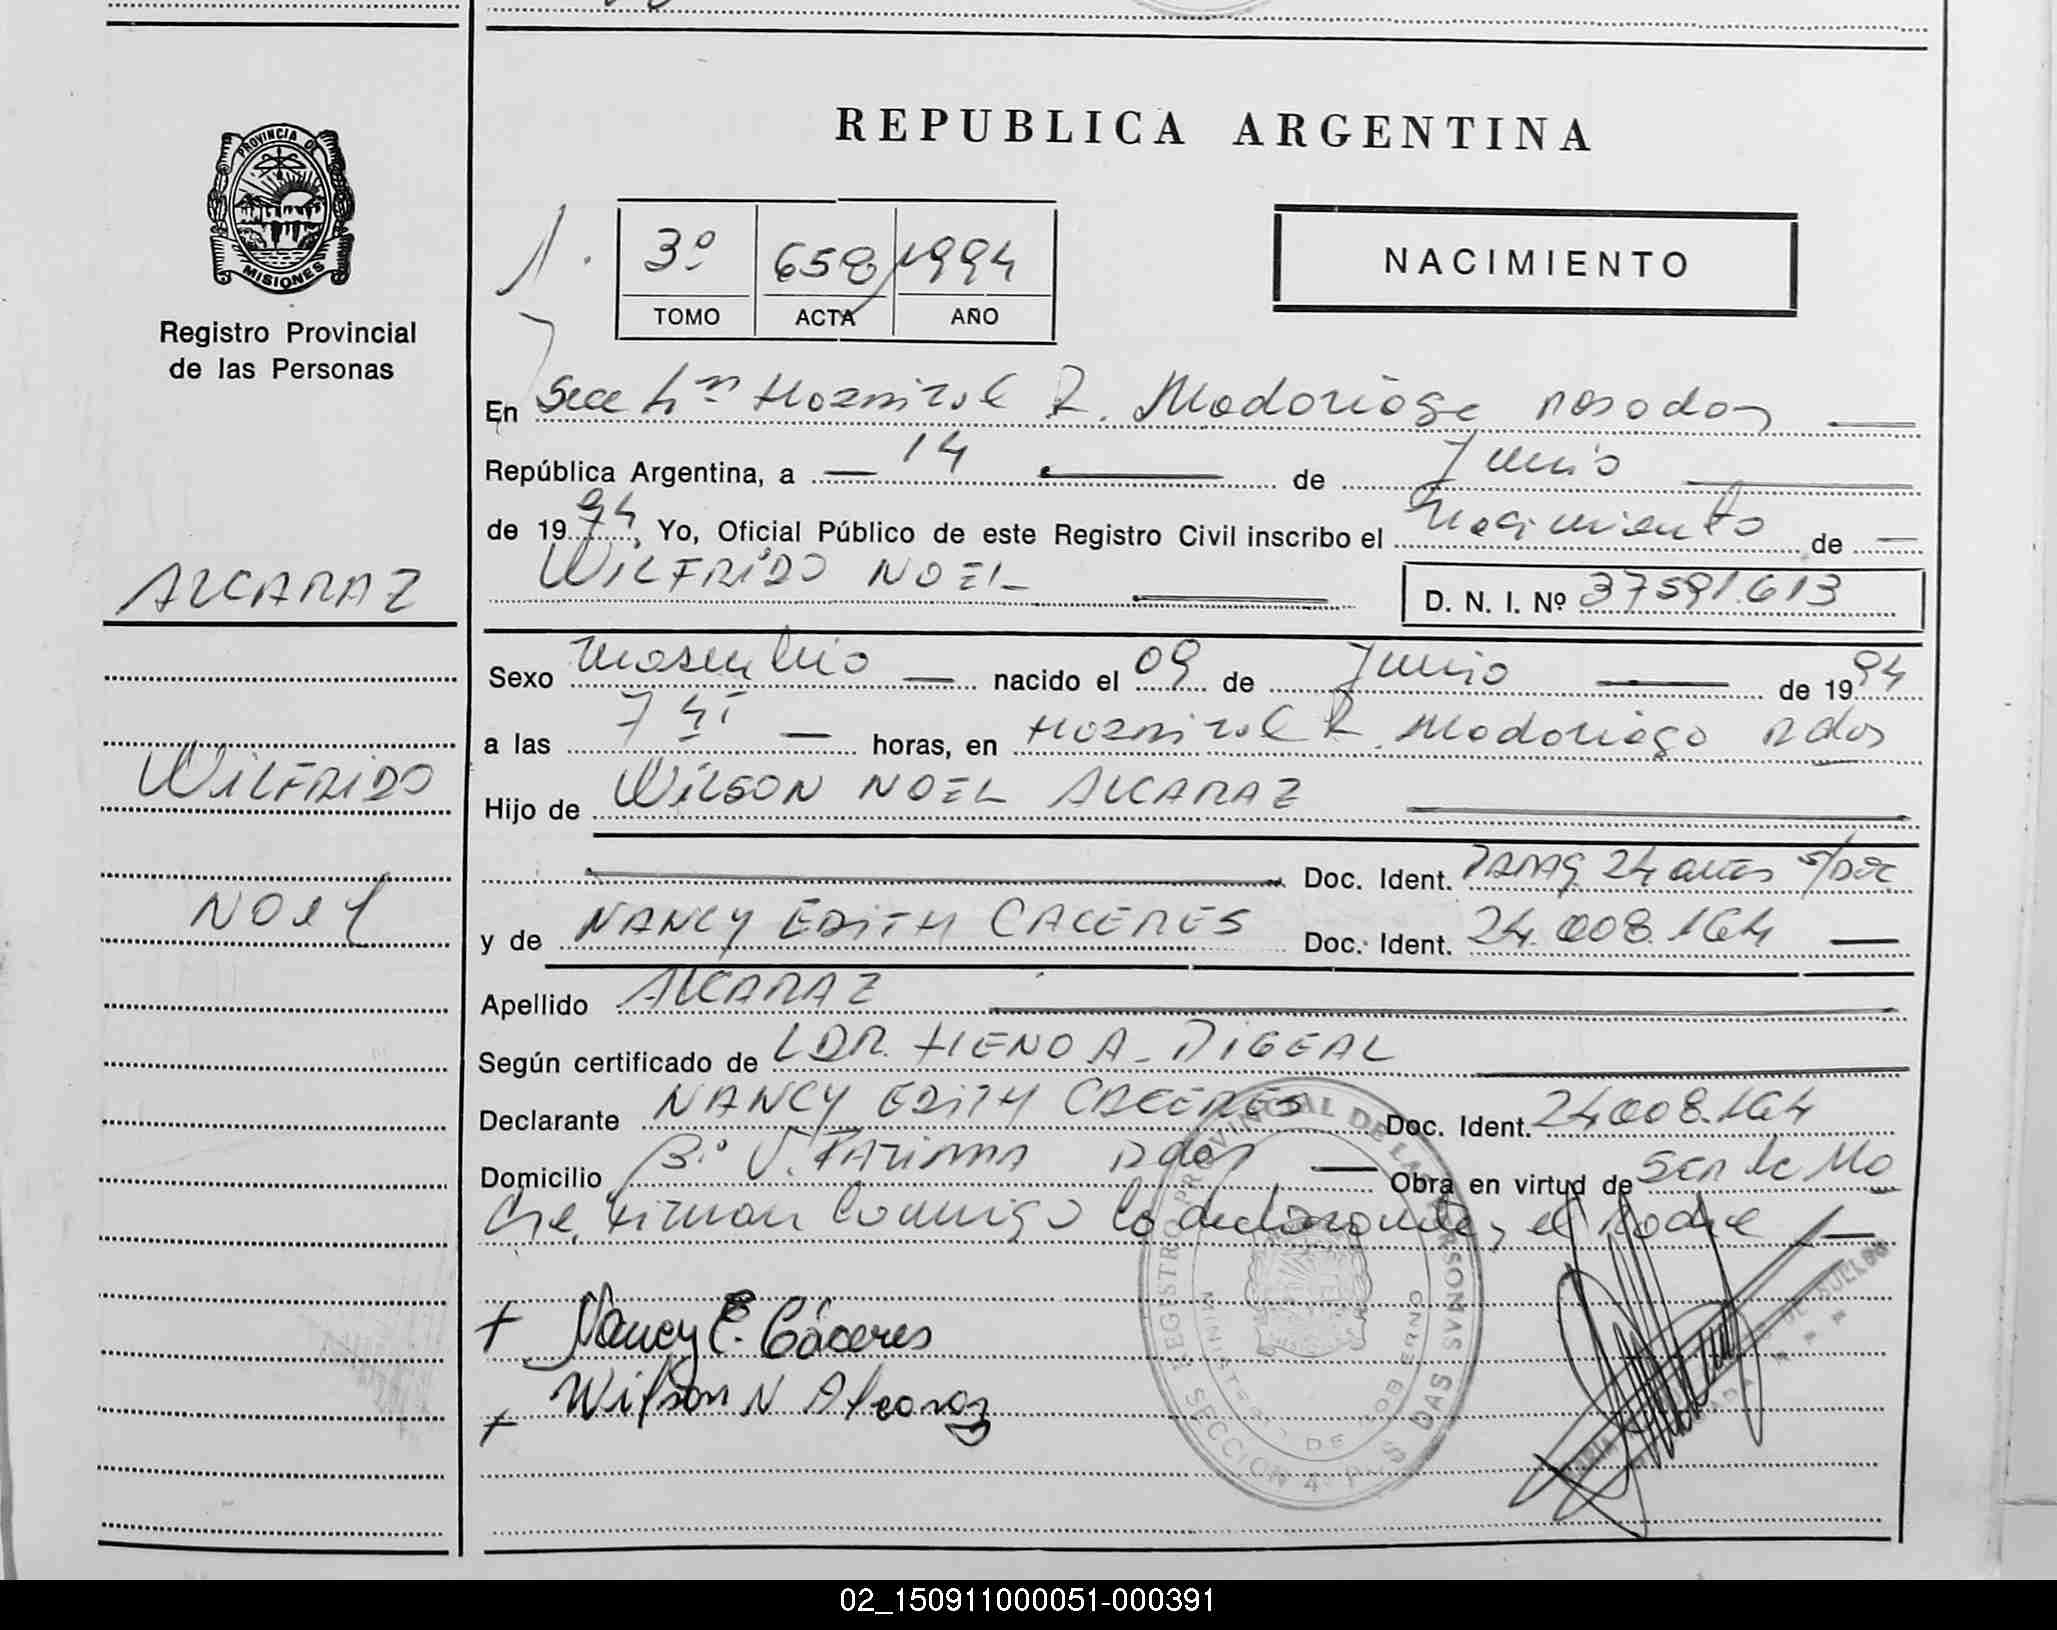 REPUBLICA ARGENTINA
PROVINCIA DE MISIONES
Registro Provincial
de las Personas
3º 658 1994
TOMO ACTA AÑO
NACIMIENTO
En Secc 4ta Hospital R. Madariaga Posadas
República Argentina, a 14 de Junio
de 1994, Yo, Oficial Público de este Registro Civil inscribo el Nacimiento de
WILFRIDO NOEL D. N. I. Nº 37591.613
ALCARAZ
WILFRIDO
NOEL
Sexo Masculino nacido el 09 de Junio de 1994
a las 7 horas, en Hospital R. Madariaga Pdas
Hijo de WILSON NOEL ALCARAZ
Doc. Ident. PARAG. 24 años s/Doc
y de NANCY EDITH CACERES Doc. Ident. 24.008.164
Apellido ALCARAZ
Según certificado de
Declarante NANCY EDITH CACERES Doc. Ident. 24008.164
Domicilio Bº V. Pdas Obra en virtud de Ser la Ma
dre, Firman conmigo la declarante y el Padre
Nancy E. Cáceres
Wilson N Alcaraz
REGISTRO PROVINCIAL DE LAS PERSONAS
MINISTERIO DE GOBIERNO
SECCION 4ª
02_150911000051-000391